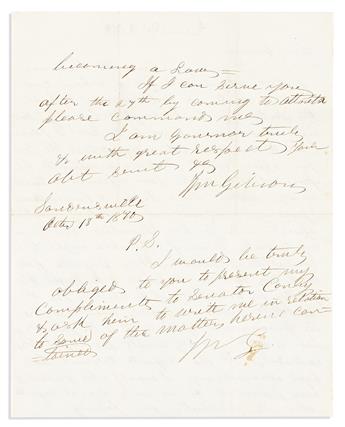 becoming a Law =
If I can serve you
after the 27th by coming to Atlanta
please command me,
I am Governor truly
& with great respect your
obt servt &c
Wm Gibson
Oct 13th 1870
P.S.
I would be truly
obliged to you to present my
Compliments to Senator Conly
& ask him to write me in relation
to some of the matters herein con-
tained
W G